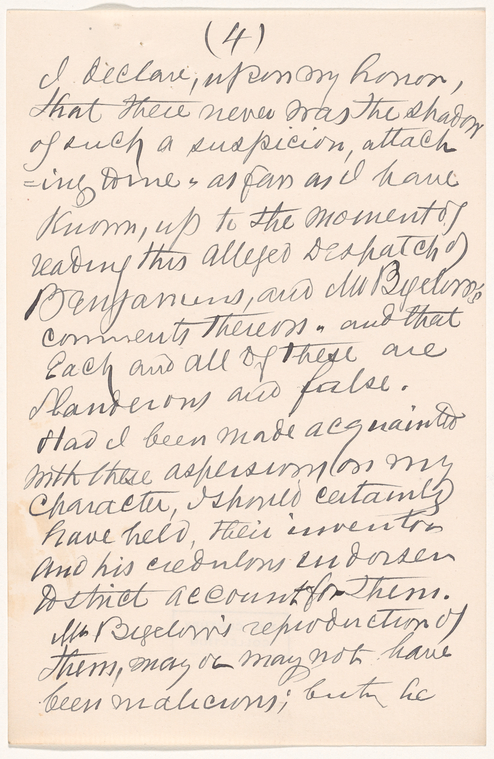 (4)
I declare, upon my honor,
that there never was the shadow
of such a suspicion, attach
=ing to me - as far as I have
known, up to the moment of
reading this alleged Despatch of
Benjamins, and Mr Bigelow's
comments thereon - and that
Each and all of these are
slanderous and false.
Had I been made acquainted
with these aspersions on my
character, I should certainly
have held, their inventor
and his credulous endorser
to strict account for them.
Mr Bigelow's reproduction of
them, may or may not have
been malicious; but he